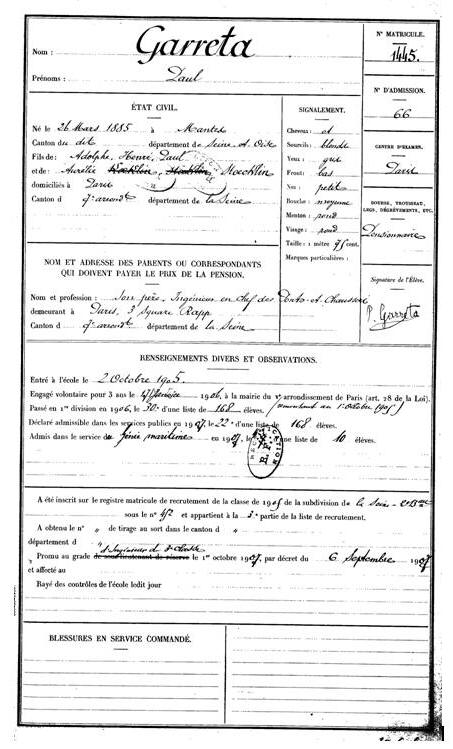 Nom : Garreta
Prénoms : Paul
N° MATRICULE.
1445.
N° D'ADMISSION.
66
CENTRE D'EXAMEN.
Paris
BOURSE, TROUSSEAU, LEGS, DÉGRÈVEMENTS, ETC.
Pensionnaire
Signature de l'Élève.
P. Garreta
ÉTAT CIVIL.
Né le 26 Mars 1885 à Mantes
Canton du dit département de Seine-et-Oise
Fils de : Adolphe, Henri, Paul
et de : Aurélie Kœchlin, Stœcklin Stoecklin
domiciliés à Paris
Canton d 7e arrondt département de la Seine
SIGNALEMENT.
Cheveux : et
Sourcils : blonds
Yeux : gris
Front : bas
Nez : petit
Bouche : moyenne
Menton : rond
Visage : rond
Taille : 1 mètre cent.
Marques particulières :
NOM ET ADRESSE DES PARENTS OU CORRESPONDANTS
QUI DOIVENT PAYER LE PRIX DE LA PENSION.
Nom et profession : Son père, Ingénieur en Chef des Ponts-et-Chaussées
demeurant à Paris, 3 Square Rapp
Canton d 7e arrondt département de la Seine
RENSEIGNEMENTS DIVERS ET OBSERVATIONS.
Entré à l'école le 2 Octobre 1905.
Engagé volontaire pour 3 ans le 1906, à la mairie du Ve arrondissement de Paris (art. 28 de la Loi).
Passé en 1re division en 1906, le 30e d'une liste de 168 élèves. (
Déclaré admissible dans les services publics en 1907, le 22e d'une liste de 168 élèves.
Admis dans le service du Génie maritime en 1907, le une liste de 10 élèves.
A été inscrit sur le registre matricule de recrutement de la classe de 1905 de la subdivision de la Seine
sous le n° et appartient à la 3e partie de la liste de recrutement.
A obtenu le n° " de tirage au sort dans le canton d "
département d "
Promu au grade d'Ingénieur de 3e Classe de sous-lieutenant de réserve le 1er octobre 1907, par décret du 6 Septembre 1907
et affecté au
Rayé des contrôles de l'école ledit jour
BLESSURES EN SERVICE COMMANDÉ.